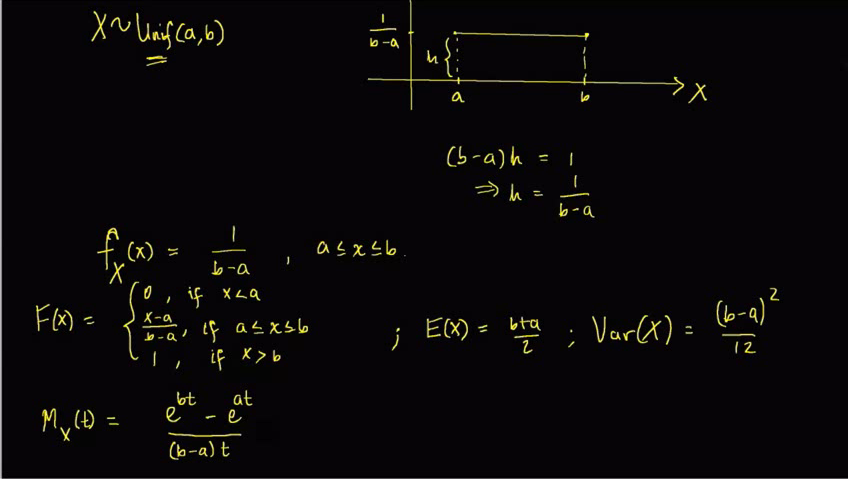 X ~ Unif(a,b)
1/(b-a)
h {
a b X
(b-a)h = 1
⇒ h = 1/(b-a)
f_X(x) = 1/(b-a) , a ≤ x ≤ b.
F(x) = { 0 , if x < a
(x-a)/(b-a) , if a ≤ x ≤ b
1 , if x > b
; E(X) = (b+a)/2 ; Var(X) = (b-a)^2/12
M_X(t) = (e^{bt} - e^{at})/((b-a)t)